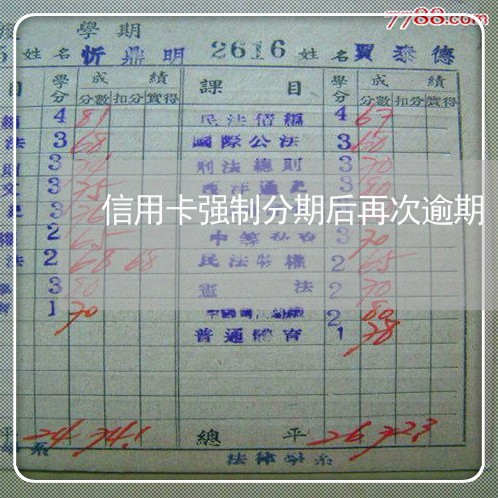 7788.com
學期
姓名 忻鼎明 2616 姓名 賈泰德
目 學分 成績 課目 學分 成績
分數 扣分 實得 分數 扣分 實得
4 81 民法債編 4 67
法 3 68 國際公法 3 60
3 刑法總則 3 70
3 75 西洋通史 3 80
信用卡强制分期后再次逾期
2 65 3 70
法 2 68 68 民法物權 2 65
3 80 憲法 2 70
1 70 2 80
普通體育 1 78
平 24 74.1 總平 26 72.3
系 法律學系